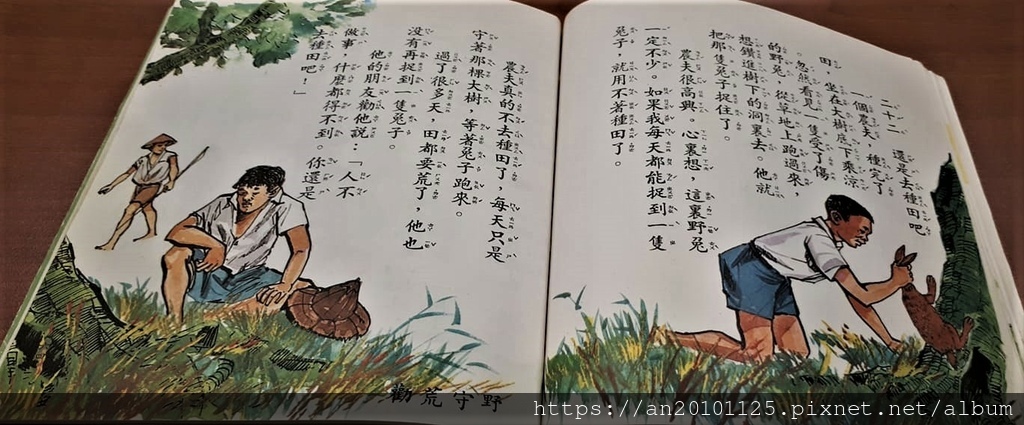 二十二　還是去種田吧
一個農夫，種完了
田，坐在大樹底下乘涼
。忽然看見一隻受了傷
的野兔，從草地上跑過來，
想鑽進樹下的洞裏去。他就
把那隻兔子捉住了。
農夫很高興。心裏想，這裏野兔
一定不少。如果我每天都能捉到一隻
兔子，就用不著種田了。
農夫真的不去種田了，每天只是
守著那棵大樹，等著兔子跑來。
過了很多天，田都要荒了，他也
沒有再捉到一隻兔子。
他的朋友勸他說：「人不
做事，什麼都得不到。你還是
去種田吧！」
野 守 荒 勸
https://an20101125.pixnet.net/album